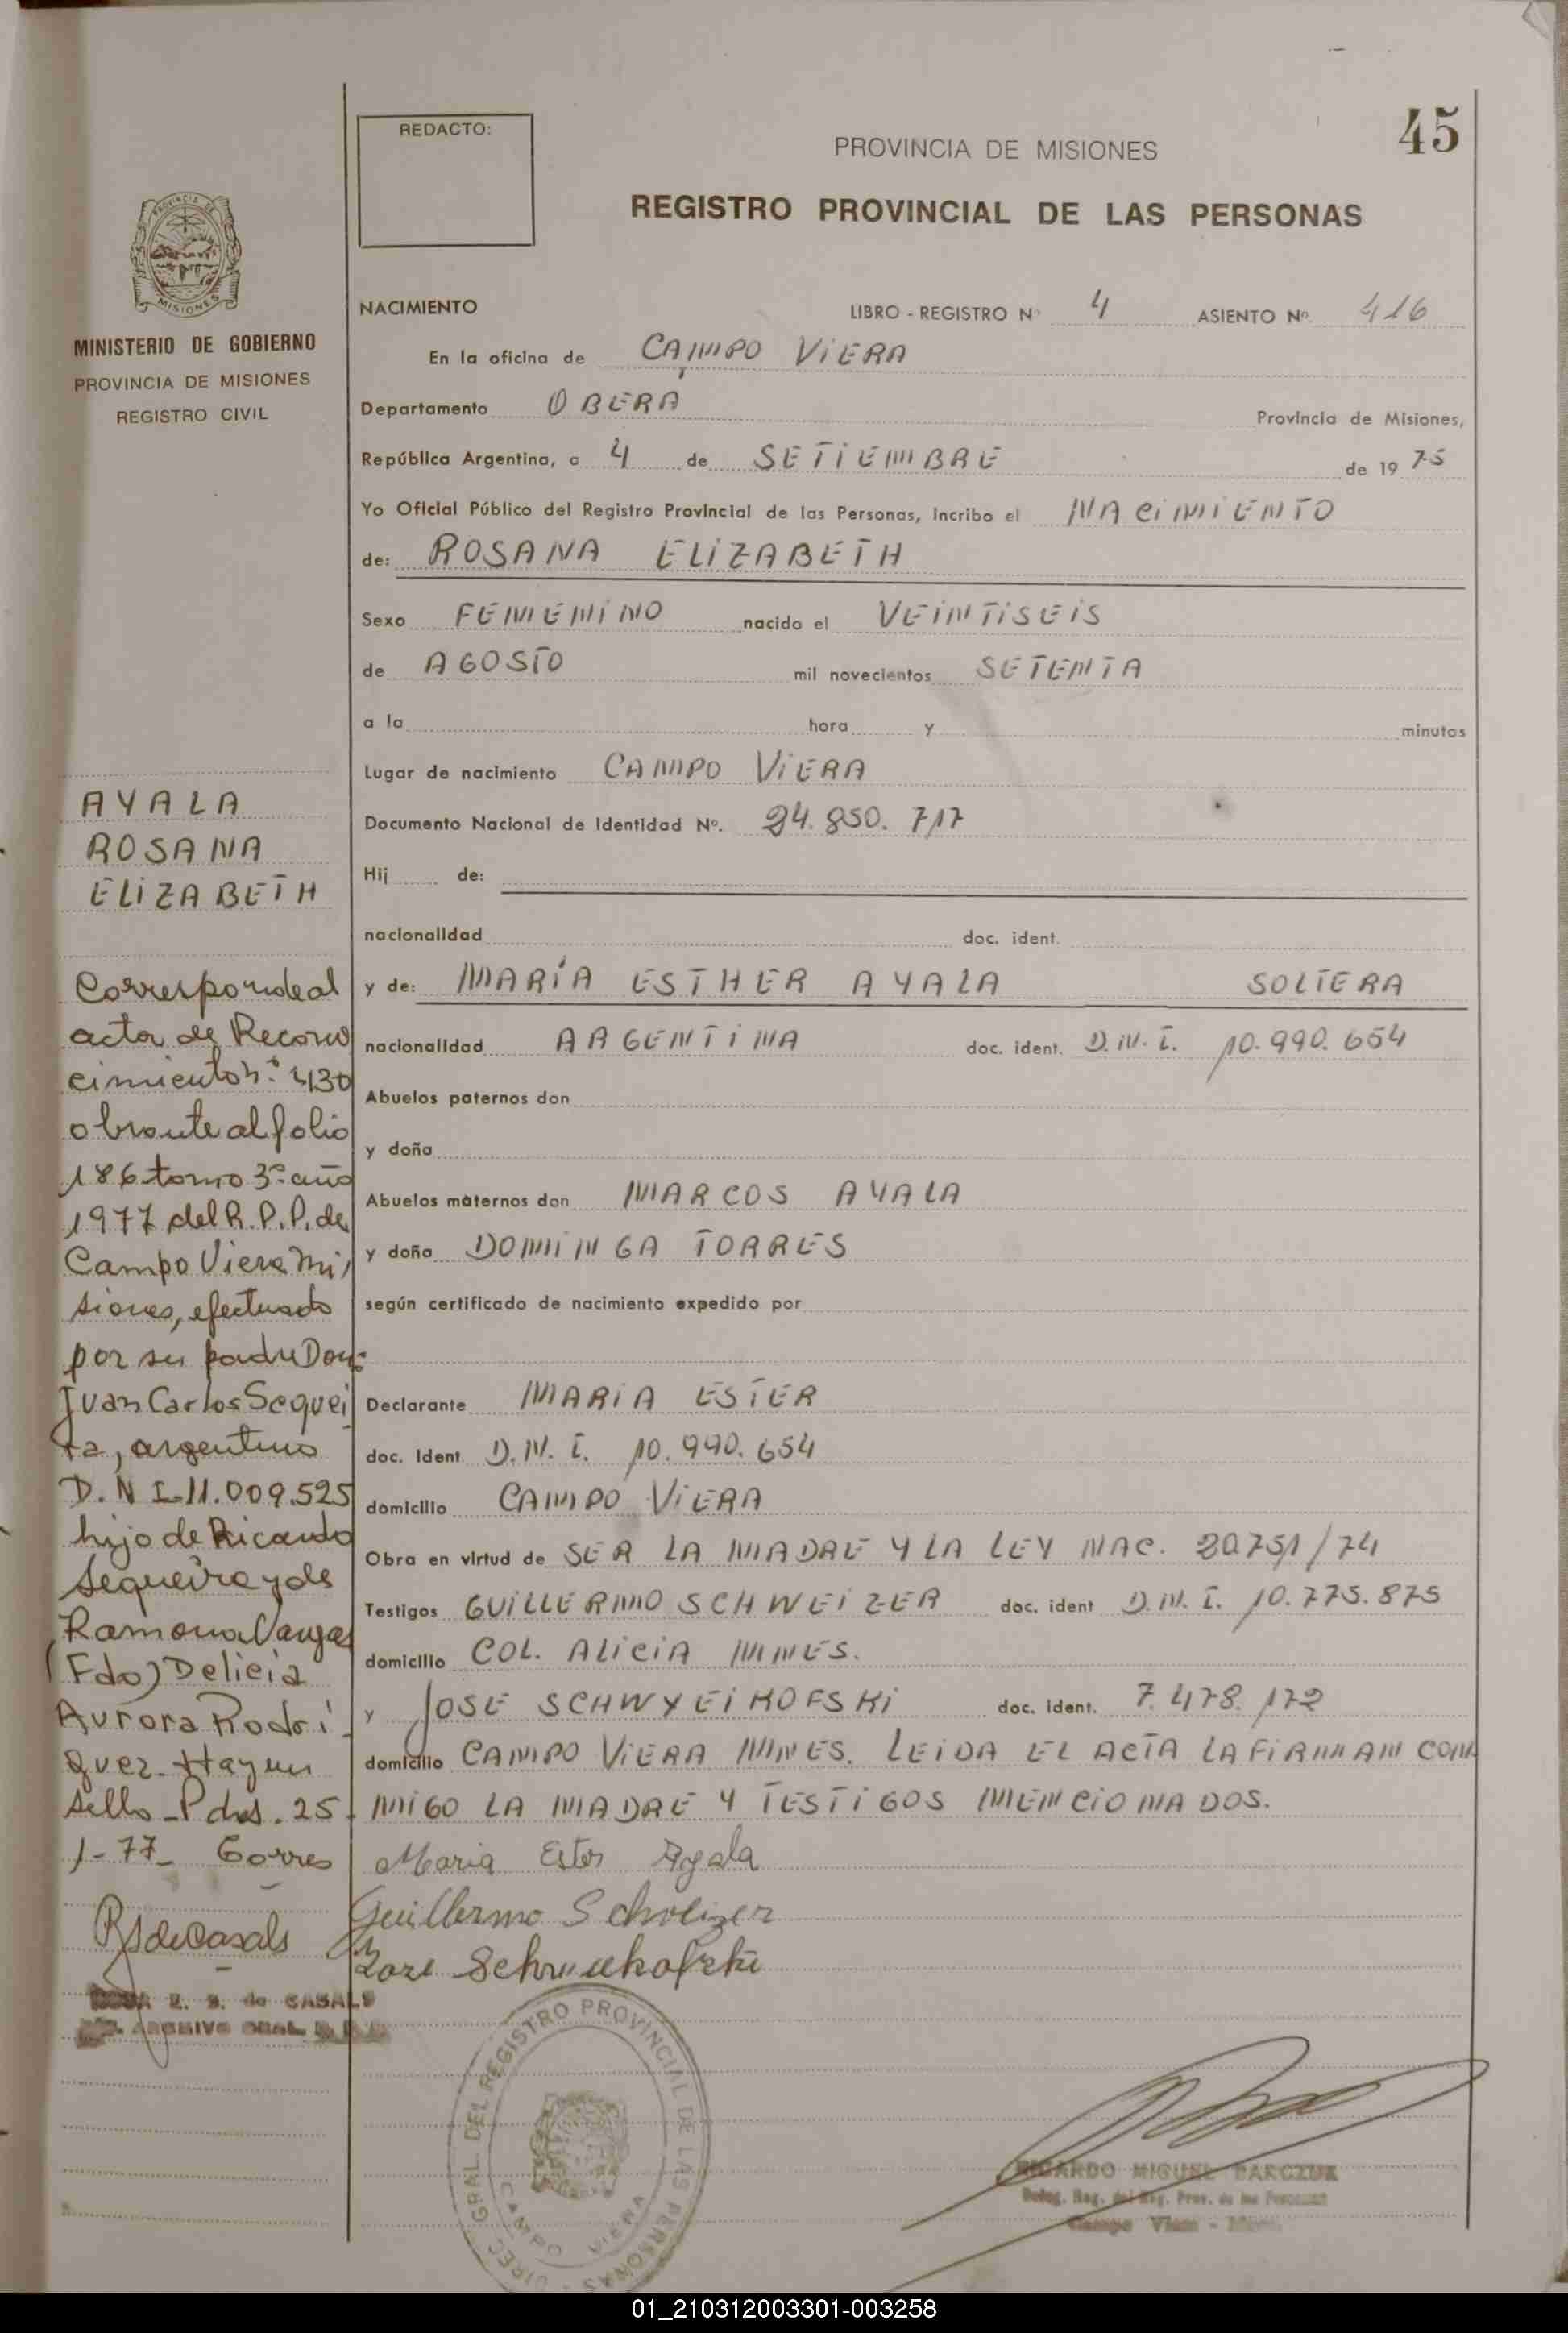 45
REDACTO:
PROVINCIA DE MISIONES
REGISTRO PROVINCIAL DE LAS PERSONAS
PROVINCIA DE
MISIONES
MINISTERIO DE GOBIERNO
PROVINCIA DE MISIONES
REGISTRO CIVIL
NACIMIENTO LIBRO - REGISTRO Nº 4 ASIENTO Nº. 416
En la oficina de CAMPO VIERA
Departamento OBERA Provincia de Misiones,
República Argentina, a 4 de SETIEMBRE de 19 75
Yo Oficial Público del Registro Provincial de las Personas, incribo el NACIMIENTO
de: ROSANA ELIZABETH
Sexo FEMENINO nacido el VEINTISEIS
de AGOSTO mil novecientos SETENTA
a la hora y minutos
Lugar de nacimiento CAMPO VIERA
Documento Nacional de Identidad Nº. 24.850.717
Hij de:
nacionalidad doc. ident.
y de: MARÍA ESTHER AYALA SOLTERA
nacionalidad ARGENTINA doc. ident. D.N.I. 10.990.654
Abuelos paternos don
y doña
Abuelos maternos don MARCOS AYALA
y doña DOMINGA TORRES
según certificado de nacimiento expedido por
Declarante MARIA ESTER
doc. Ident D.N.I. 10.990.654
domicilio CAMPO VIERA
Obra en virtud de SER LA MADRE Y LA LEY NAC. 20751/74
Testigos GUILLERMO SCHWEIZER doc. ident D.N.I. 10.775.875
domicilio COL. ALICIA MNES.
y JOSE SCHWYEIKOFSKI doc. ident. 7.478.172
domicilio CAMPO VIERA MNES. LEIDA EL ACTA LA FIRMAM CON
MIGO LA MADRE Y TESTIGOS MENCIONADOS.
Maria Ester Ayala
Guillermo Schweizer
AYALA
ROSANA
ELIZABETH
Corresponde al
acta de Recono
cimiento n.º 430
obrante al folio
186 tomo 3º año
1977 del R.P.P. de
Campo Viera Mi
siones, efectuado
por su padre Don:
Juan Carlos Sequei
ra, argentino
D.N I.11.009.525
hijo de Ricardo
Sequeira y de
Ramona Vargas
(Fdo) Delicia
Aurora Rodri
guez. Hay un
sello - Pdas. 25-
1-77_
R S de Casals
E. S. de CASALS
ARCHIVO GRAL.
DIREC. GRAL. DEL REGISTRO PROVINCIAL DE LAS PERSONAS
CAMPO VIERA
RICARDO MIGUEL
Campo Viera
01_210312003301-003258